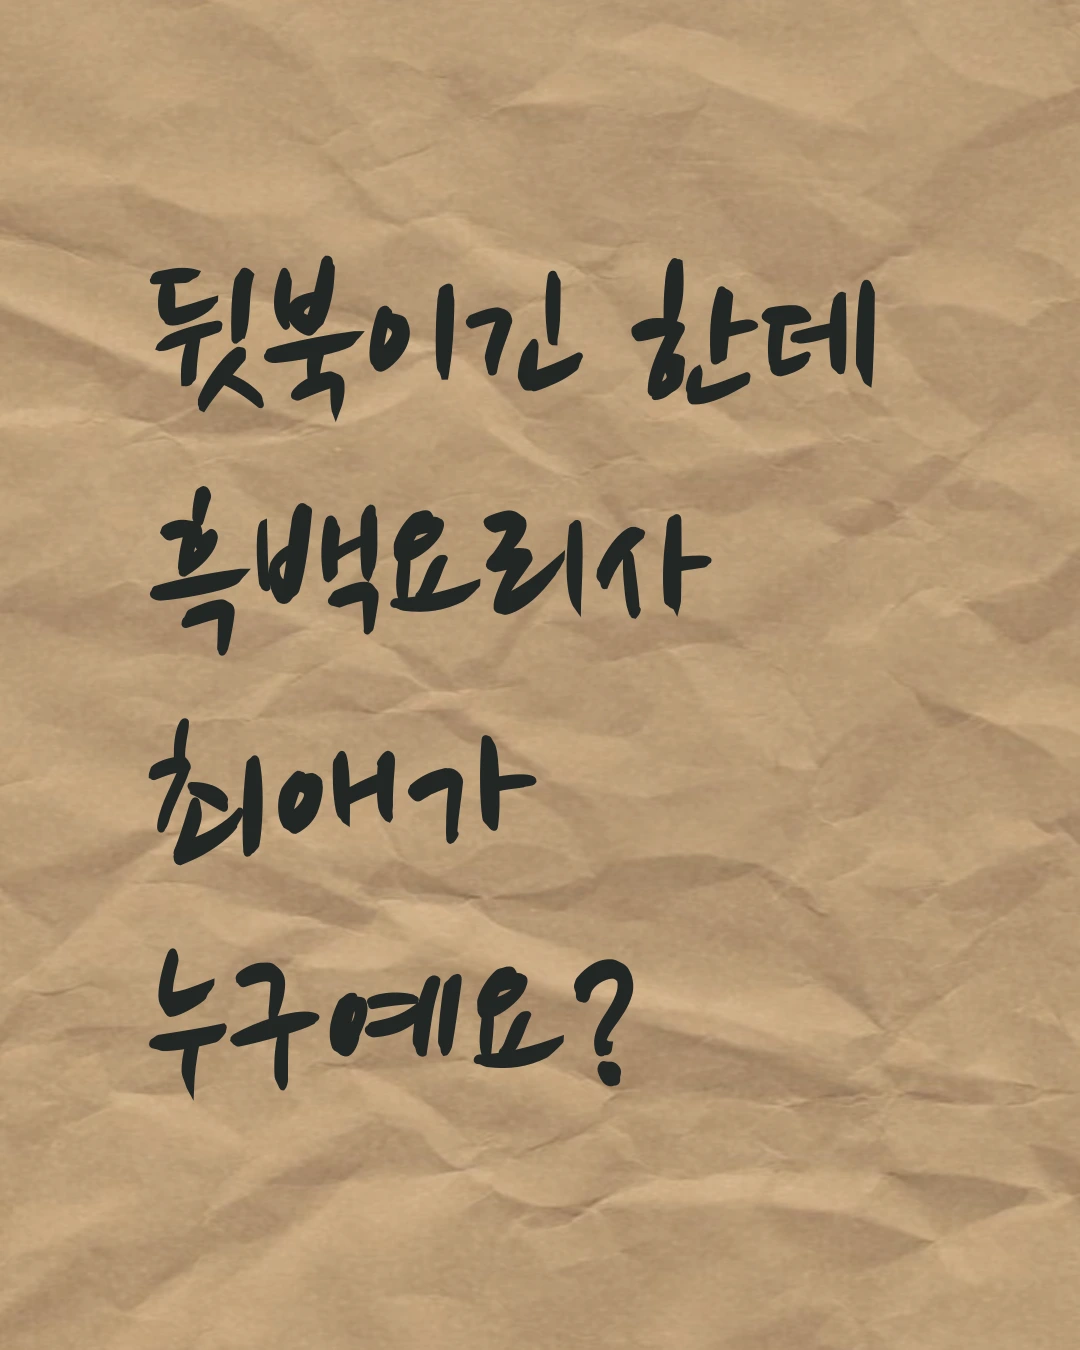 뒷북이긴 한데
흑백요리사
최애가
누구예요?